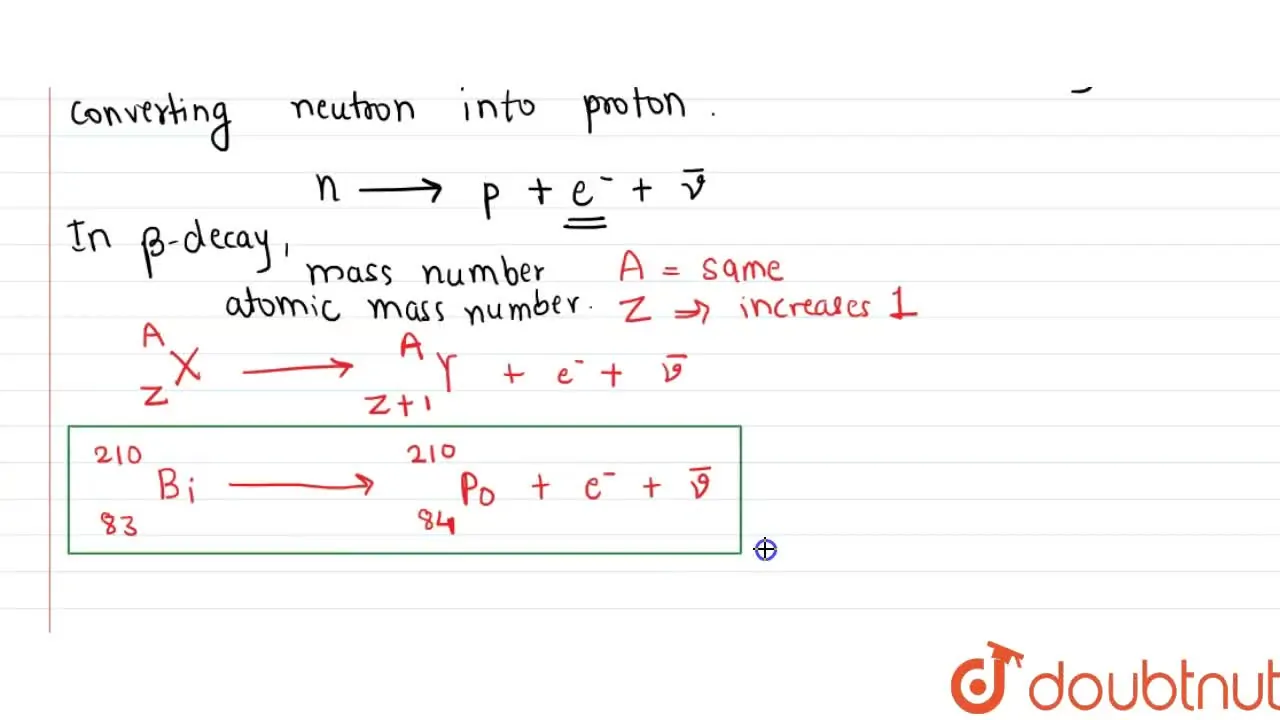 converting neutron into proton.
n → p + e⁻ + ν̄
In β-decay,
mass number A = same
atomic mass number. Z ⇒ increases 1
ᴬ_Z X → ᴬ_Z+1 Y + e⁻ + ν̄
²¹⁰₈₃ Bi → ²¹⁰₈₄ Po + e⁻ + ν̄
doubtnut